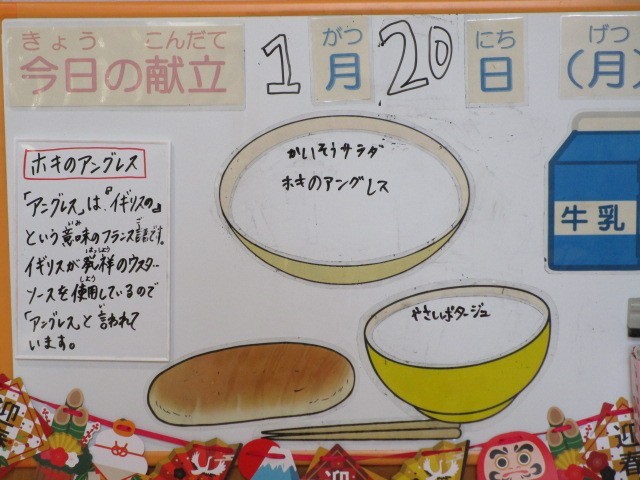 きょう こんだて
今日の献立
1月20日(月)
がつ にち げつ
ホキのアングレス
「アングレス」は『イギリスの』
という意味のフランス語です。
いみ ご
イギリスが発祥のウスター
はっしょう
ソースを使用しているので
しよう
「アングレス」と言われて
い
います。
かいそうサラダ
ホキのアングレス
やさいポタージュ
牛乳
迎春
迎
迎春